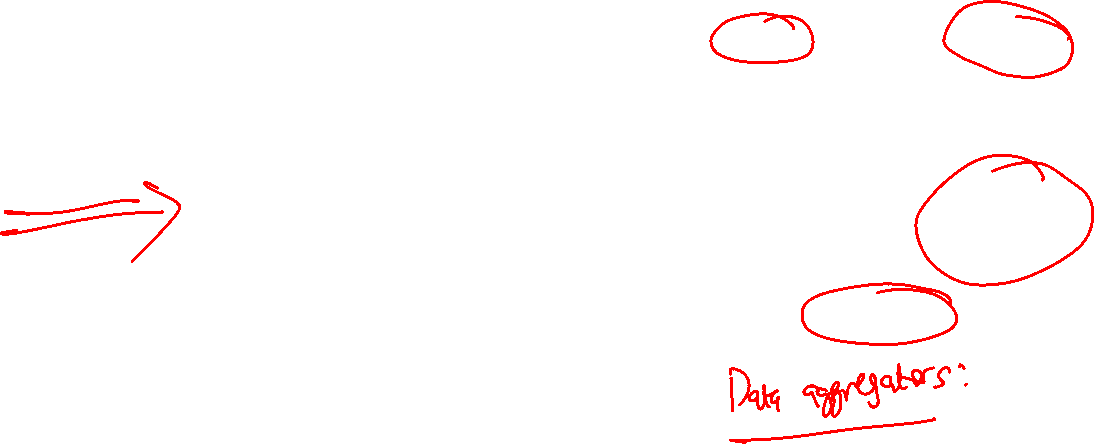 Data aggregators: